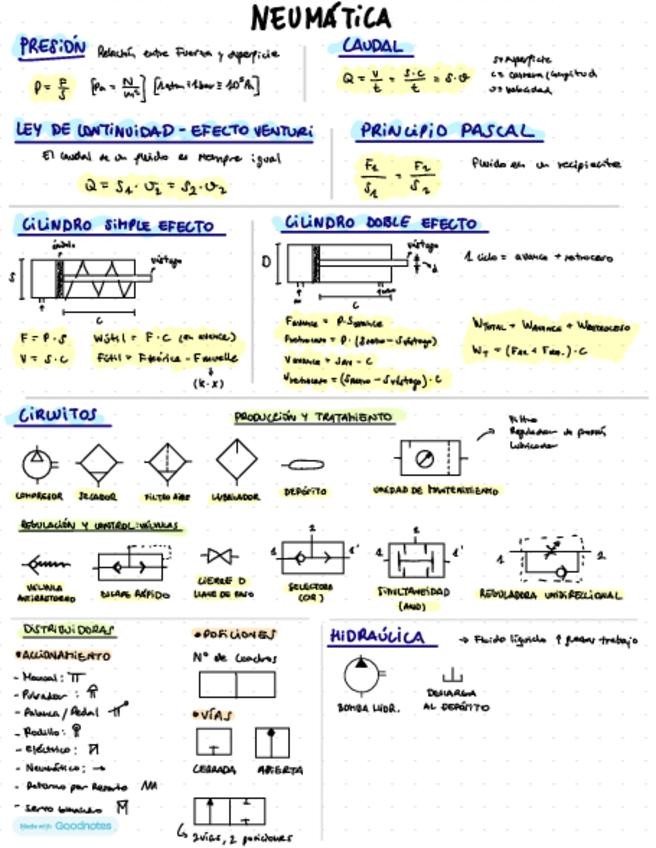 NEUMÁTICA
PRESIÓN Relación entre Fuerza y superficie
P = F/S [Pa = N/m²] [1atm = 1bar = 10⁵Pa]
CAUDAL
Q = V/t = S·C/t = S·v
S = superficie
C = carrera/longitud
v = velocidad
LEY DE CONTINUIDAD - EFECTO VENTURI
El caudal de un fluido es siempre igual
Q = S₁ · v₁ = S₂ · v₂
PRINCIPIO PASCAL
F₁/S₁ = F₂/S₂ Fluido en un recipiente
CILINDRO SIMPLE EFECTO
émbolo
vástago
S
C
F = P · S Wútil = F · C (en avance)
V = S · C Fútil = Fteórica - Fmuelle
(k·x)
CILINDRO DOBLE EFECTO
vástago
D
d
C
1 ciclo = avance + retroceso
Favance = P · Savance
Fretroceso = P · (Savance - Svástago)
Vavance = Sav · C
Vretroceso = (Savance - Svástago) · C
WTOTAL = WAVANCE + WRETROCESO
WT = (FAV. + FRET.) · C
CIRCUITOS
PRODUCCIÓN Y TRATAMIENTO
COMPRESOR SECADOR FILTRO AIRE LUBRICADOR DEPÓSITO UNIDAD DE MANTENIMIENTO
Filtro
Regulador de presión
Lubricador
REGULACIÓN Y CONTROL: VÁLVULAS
VÁLVULA
ANTIRRETORNO
ESCAPE RÁPIDO
CIERRE O
LLAVE DE PASO
2
1 1'
SELECTORA
(OR)
2
1 1'
SIMULTANEIDAD
(AND)
1 2
REGULADORA UNIDIRECCIONAL
DISTRIBUIDORAS
• ACCIONAMIENTO
- Manual:
- Pulsador:
- Palanca / Pedal
- Rodillo:
- Eléctrico:
- Neumático:
- Retorno por Resorte
- Servo
• POSICIONES
Nº de cuadros
• VÍAS
CERRADA ABIERTA
2 vías, 2 posiciones
HIDRÁULICA → Fluido líquido ↑ trabajo
BOMBA HIDR.
DESCARGA
AL DEPÓSITO
Made with Goodnotes